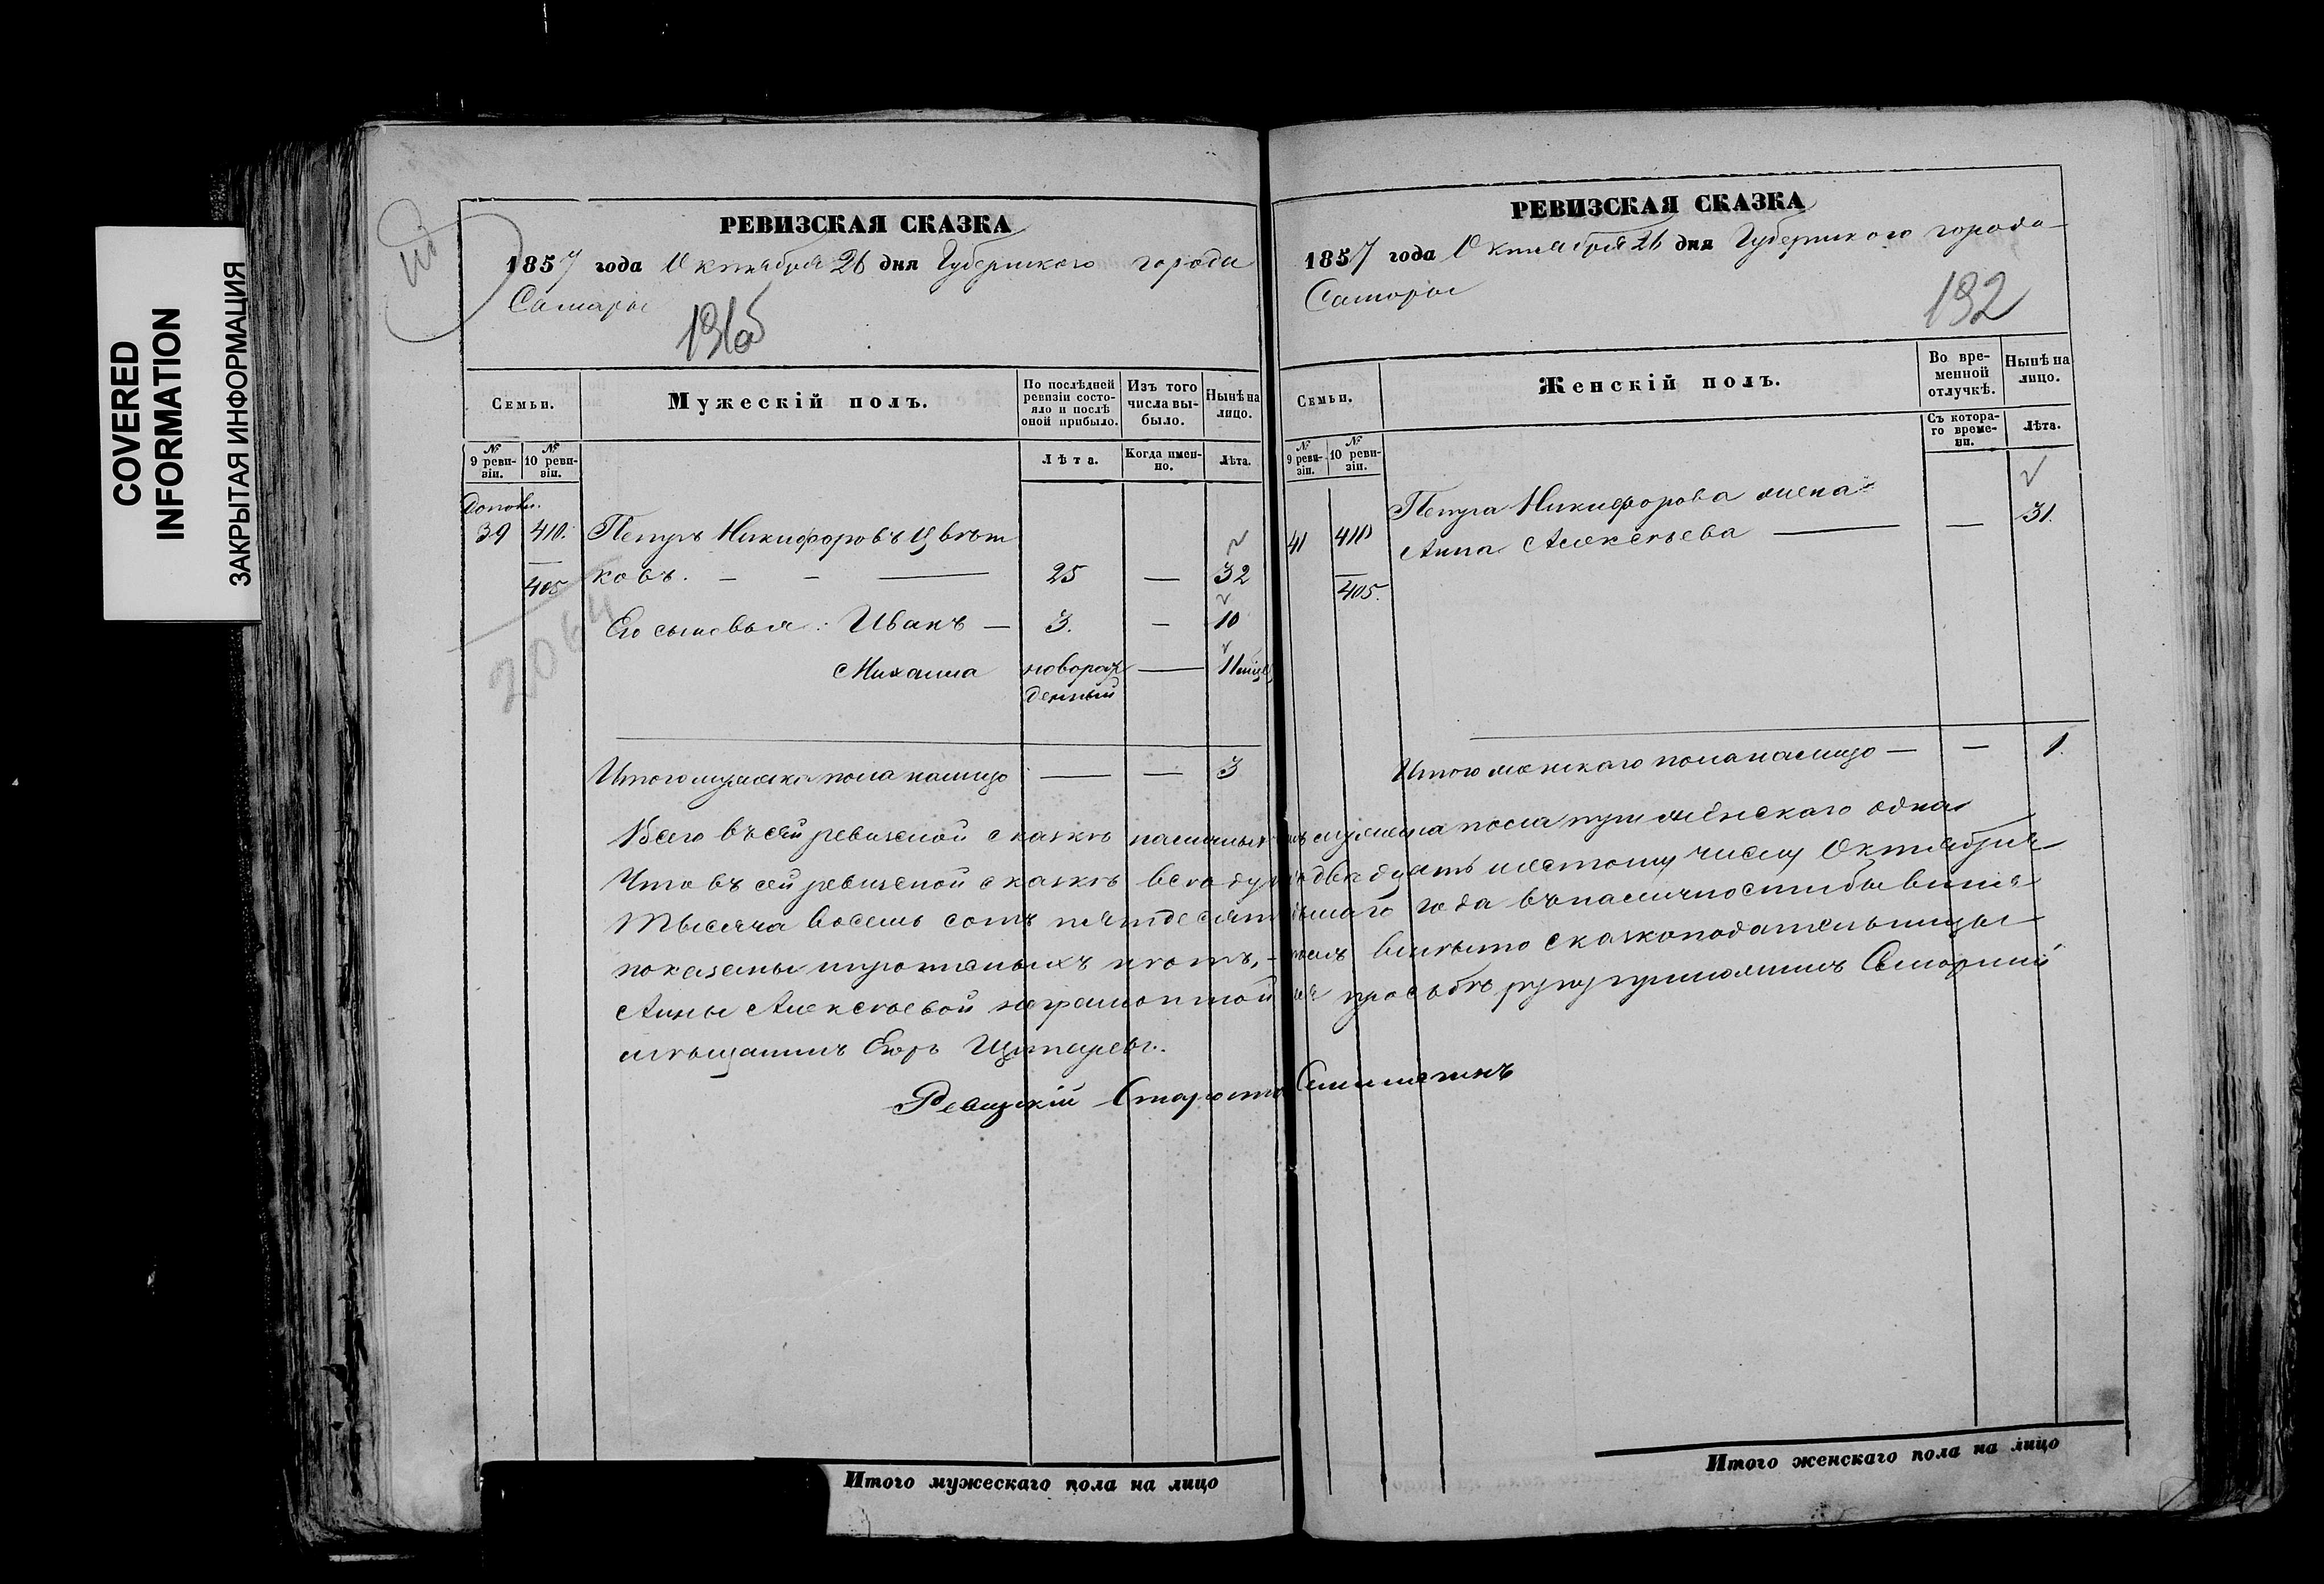 COVERED
INFORMATION
ЗАКРЫТАЯ ИНФОРМАЦИЯ
РЕВИЗСКАЯ СКАЗКА
1857 года Октября 26 дня Губернскаго города
Самары
191об
Семьи.
Мужескій полъ.
По послѣдней ревизіи состояло и послѣ оной прибыло.
Изъ того числа выбыло.
Нынѣ на лицо.
№ 9 ревизіи.
№ 10 ревизіи.
Лѣта.
Когда именно.
Лѣта.
Дополн.
39 410. Петръ Никифоровъ Цвѣт
405 ковъ. — — — 25 — 32
2064
Его сыновья: Иванъ — 3. — 10
Михаила новорож — 11 мѣс
денный
Итого мужска пола налицо — — 3
РЕВИЗСКАЯ СКАЗКА
1857 года Октября 26 дня Губернскаго города
Самары
192
Семьи.
Женскій полъ.
Во временной отлучкѣ.
Нынѣ на лицо.
№ 9 ревизіи.
№ 10 ревизіи.
Съ котораго времени.
Лѣта.
41 410 Петра Никифорова жена
Анна Алексѣева — — 31.
405.
Итого женскаго пола налицо — — 1.
Всего въ сей ревизской сказкѣ наличныхъ мужеска пола три женскаго одна
Что въ сей ревизской сказкѣ всѣ двадцать шестому числу Октября
Тысяча восемь сотъ пятдесят года въ наличности бывшія
показаны и прописныхъ нѣтъ, — въ чемъ вмѣсто сказкоподательницы
Анны Алексѣевой неграмотной ея просьбѣ руку приложилъ Самарскій
мѣщанинъ Егоръ
Ревизскій Староста
Итого мужескаго пола на лицо
Итого женскаго пола на лицо